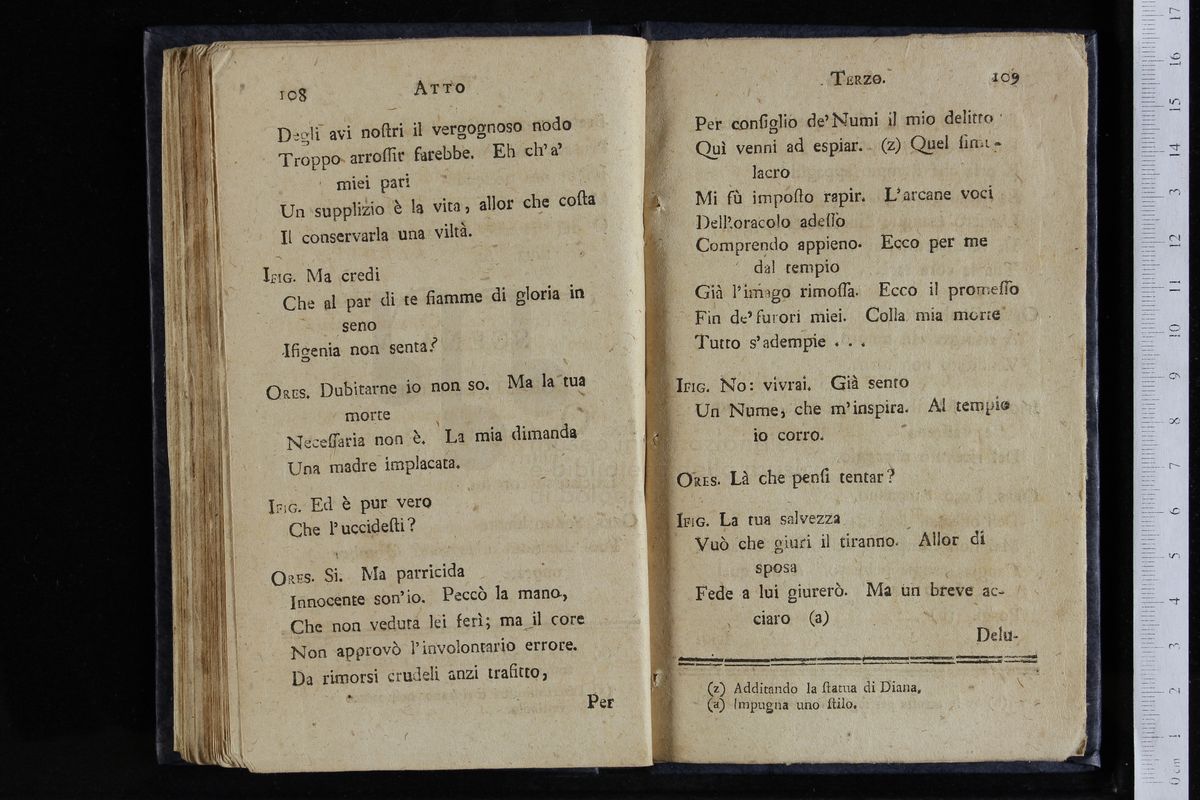 108 Atto
Degli avi noſtri il vergognoso nodo
Troppo arroſſir farebbe. Eh ch'a'
miei pari
Un supplizio è la vita, allor che coſta
Il conservarla una viltà.
Ifig. Ma credi
Che al par di te fiamme di gloria in
seno
Ifigenia non senta?
Ores. Dubitarne io non so. Ma la tua
morte
Neceſſaria non è. La mia dimanda
Una madre implacata.
Ifig. Ed è pur vero
Che l'uccideſti?
Ores. Si. Ma parricida
Innocente son'io. Peccò la mano,
Che non veduta lei ferì; ma il core
Non approvò l'involontario errore.
Da rimorsi crudeli anzi trafitto,
Per
Terzo. 109
Per conſiglio de'Numi il mio delitto
Quì venni ad espiar. (z) Quel ſimu-
lacro
Mi fù impoſto rapir. L'arcane voci
Dell'oracolo adeſſo
Comprendo appieno. Ecco per me
dal tempio
Già l'imago rimoſſa. Ecco il promeſſo
Fin de'furori miei. Colla mia morte
Tutto s'adempie . . .
Ifig. No: vivrai. Già sento
Un Nume, che m'inspira. Al tempio
io corro.
Ores. Là che penſi tentar?
Ifig. La tua salvezza
Vuò che giuri il tiranno. Allor di
sposa
Fede a lui giurerò. Ma un breve ac-
ciaro (a)
Delu-
(z) Additando la ſtatua di Diana.
(a) Impugna uno ſtilo.
0 cm 1 2 3 4 5 6 7 8 9 10 11 12 13 14 15 16 17